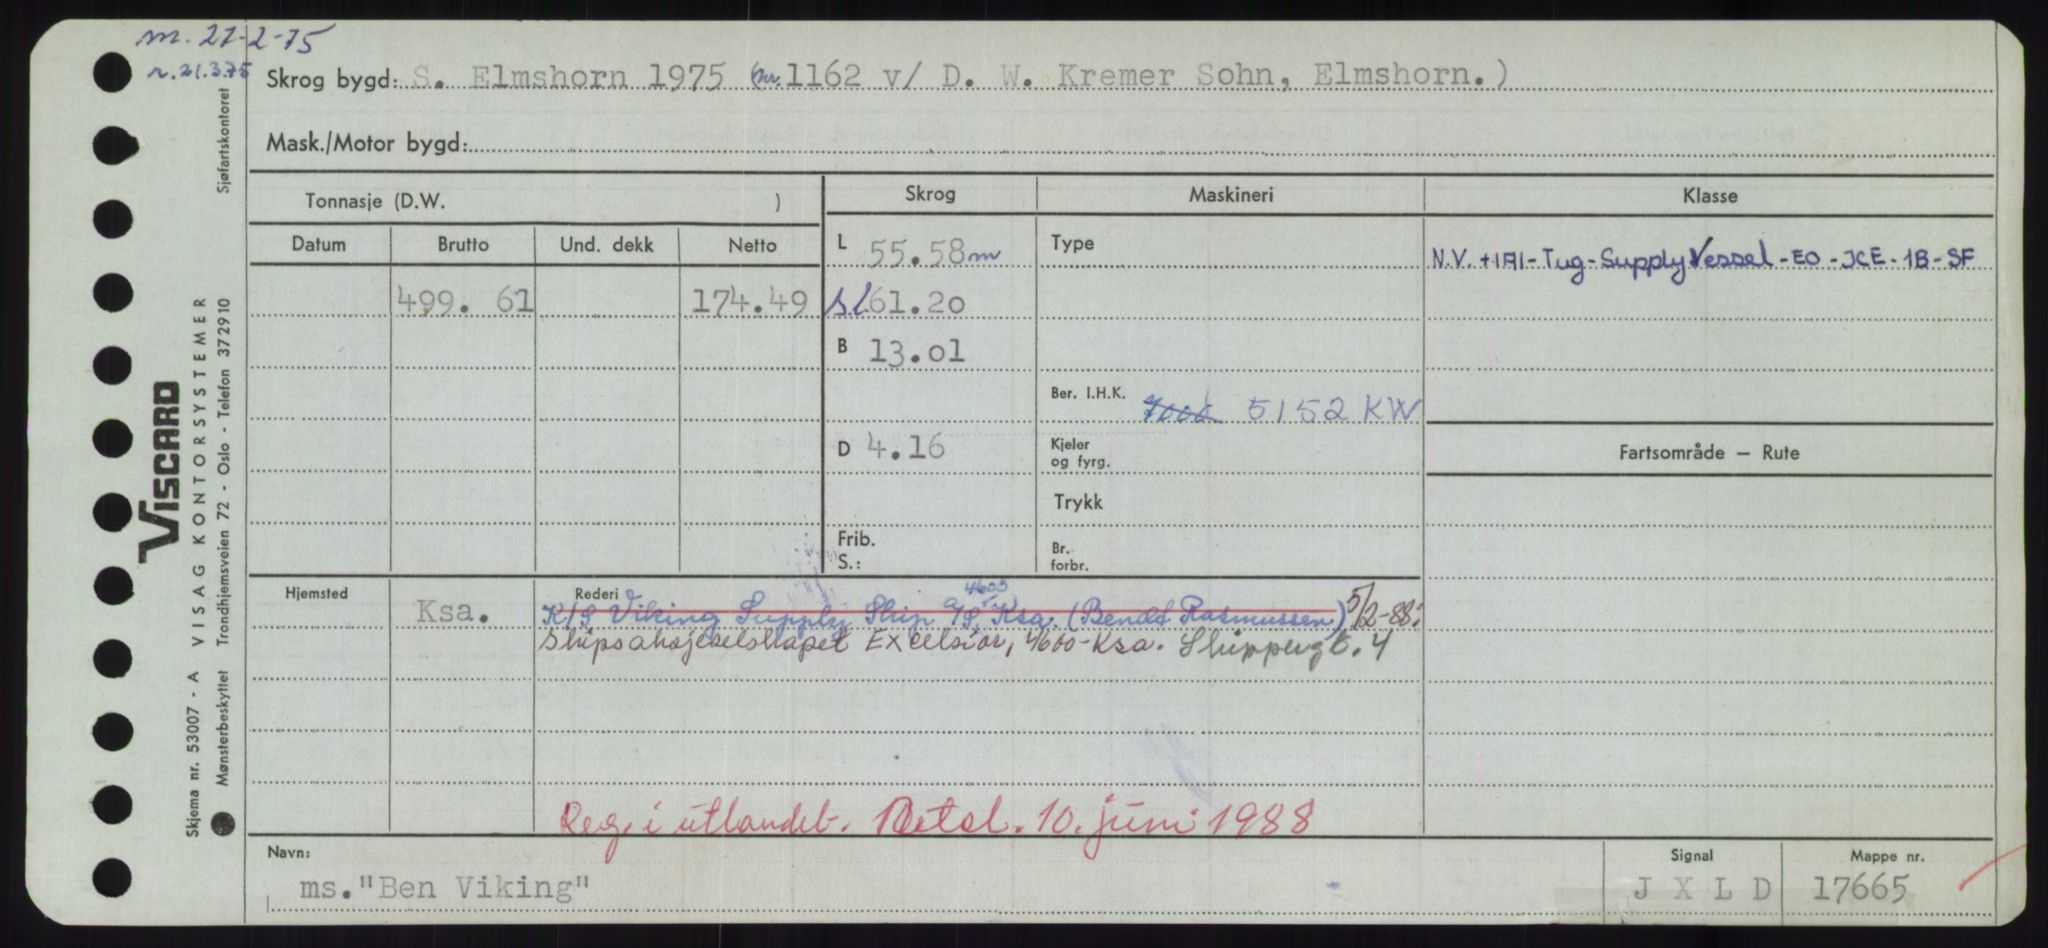 m. 27-2-75
r. 21.3.75
Skrog bygd: S. Elmshorn 1975 (nr. 1162 v/ D. W. Kremer Sohn, Elmshorn.)
Mask./Motor bygd:
Tonnasje (D.W. )
Skrog
Maskineri
Klasse
Datum Brutto Und. dekk Netto
L 55.58 m
Type
N.V. +1A1-Tug-Supply Vessel-EO-ICE-1B-SF
499. 61 174.49 sl 61.20
B 13.01
Ber. I.H.K. 7000 5152 KW
D 4.16
Kjeler
og fyrg.
Fartsområde — Rute
Trykk
Frib.
S.:
Br.
forbr.
Hjemsted Ksa.
Rederi
4600
K/S Viking Supply Ship A/S, Ksa. (Bendt Rasmussen) 5/2-88:
Skipsaksjeselskapet Excelsior, 4600-Ksa. Skippergt. 4
Reg. i utlandet. Detsl. 10. juni 1988
Navn: ms."Ben Viking"
Signal J X L D
Mappe nr. 17665
Sjøfartskontoret
VISCARD
VISAG KONTORSYSTEMER
Trondhjemsveien 72 - Oslo - Telefon 372910
Skjema nr. 53007 - A
Mønsterbeskyttet